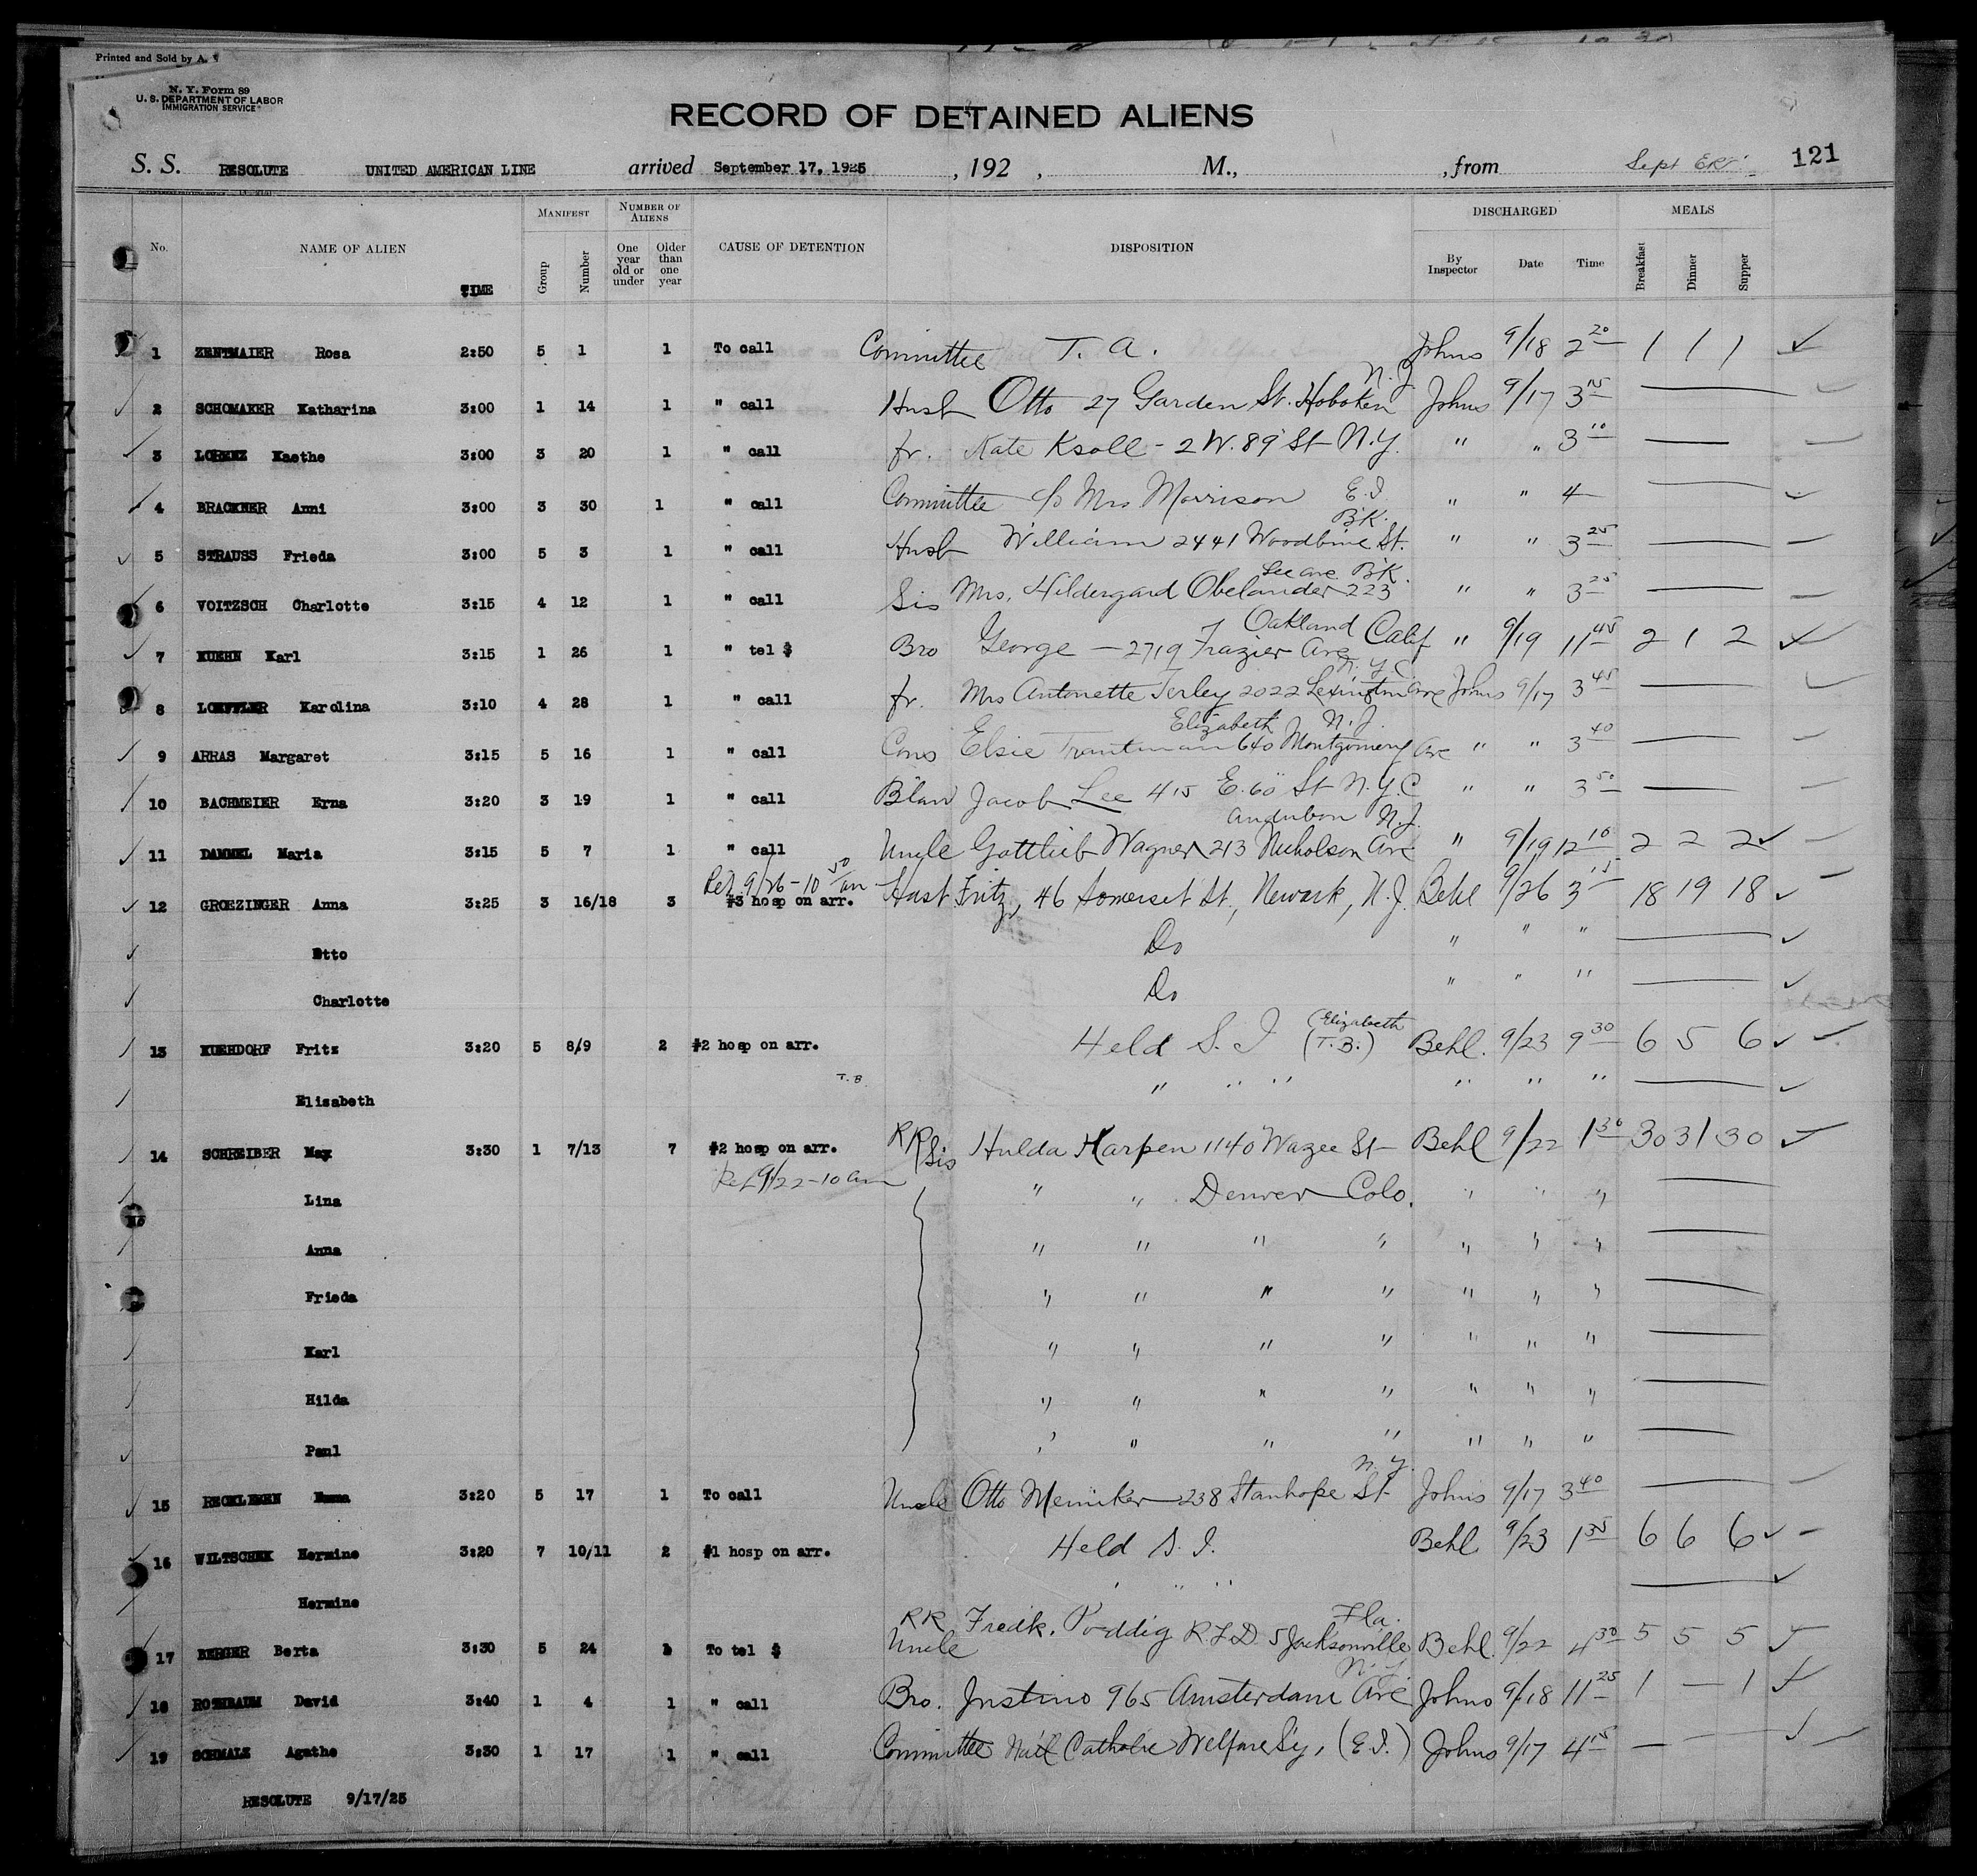 Printed and Sold by A.
N. Y. Form 89
U. S. DEPARTMENT OF LABOR
IMMIGRATION SERVICE
RECORD OF DETAINED ALIENS
S. S. RESOLUTE UNITED AMERICAN LINE arrived September 17, 1925 , 192 , M., , from Sept 121
No. NAME OF ALIEN TIME MANIFEST Group Number NUMBER OF ALIENS One year old or under Older than one year CAUSE OF DETENTION DISPOSITION DISCHARGED By Inspector Date Time MEALS Breakfast Dinner Supper
1 ZENTMAIER Rosa 2:50 5 1 1 To call Committee T. A. Johns 9/18 2 20 1 1 1
N.J.
2 SCHOMAKER Katharina 3:00 1 14 1 " call Husb Otto 27 Garden St. Hoboken Johns 9/17 3 15
3 LORENZ Kaethe 3:00 3 20 1 " call fr. Kate Ksoll - 2 W. 89 St N.Y. " " 3 10
4 BRACKNER Anni 3:00 3 30 1 " call Committee c/o Mrs Morrison E.I. " " 4
BK.
5 STRAUSS Frieda 3:00 5 3 1 " call Husb William 2441 Woodbine St. " " 3 25
Lee ave BK.
6 VOITZSCH Charlotte 3:15 4 12 1 " call Sis Mrs. Hildergard Obelander 223 " " 3 25
Oakland
7 KUEHN Karl 3:15 1 26 1 " tel $ Bro George - 2719 Frazier Ave Calif " 9/19 11 45 2 1 2
N.Y.C
8 LOEFFLER Karolina 3:10 4 28 1 " call fr. Mrs Antonette Terley 2022 Lexington ave Johns 9/17 3 45
Elizabeth N.J.
9 ARRAS Margaret 3:15 5 16 1 " call Cous Elsie Trautman 640 Montgomery Ave " " 3 40
10 BACHMEIER Erna 3:20 3 19 1 " call Blaw Jacob Lee 415 E. 60 St N.Y.C " " 3 50
Audubon N.J.
11 DAMMEL Maria 3:15 5 7 1 " call Uncle Gottlieb Wagner 213 Nicholson Ave " 9/19 12 10 2 2 2
Rel. 9/26 - 10 50 am
12 GROEZINGER Anna 3:25 3 16/18 3 #3 hosp on arr. Husb Fritz, 46 Somerset St., Newark, N.J. Behl 9/26 3 15 18 19 18
Otto Do " " "
Charlotte Do " " "
13 KUEHDORF Fritz 3:20 5 8/9 2 #2 hosp on arr. Held S. I (Elizabeth T.B.) Behl. 9/23 9 30 6 5 6
T.B.
Elisabeth " " " " " "
14 SCHREIBER Max 3:30 1 7/13 7 #2 hosp on arr. RR Sis Hulda Harpen 1140 Wazee St Behl 9/22 1 30 30 31 30
Rel 9/22 - 10 am
Lina " " Denver Colo. " " "
Anna " " " " " " "
Frieda " " " " " " "
Karl " " " " " " "
Hilda " " " " " " "
Paul " " " " " " "
N.Y.
15 RECKLEGEN Emma 3:20 5 17 1 To call Uncle Otto Meniker 238 Stanhope St Johns 9/17 3 40
16 WILTSCHEK Hermine 3:20 7 10/11 2 #1 hosp on arr. Held S. I. Behl 9/23 1 35 6 6 6
Hermine " " "
RR Fla.
17 BERGER Berta 3:30 5 24 1 To tel $ Uncle Fredk. Poeddig R.F.D. 5 Jacksonville Behl. 9/22 4 30 5 5 5
N.Y.
18 ROTHBAUM David 3:40 1 4 1 " call Bro. Justino 965 Amsterdam Ave Johns 9/18 11 25 1 — 1
19 SCHMALZ Agathe 3:30 1 17 1 " call Committee Nat'l Catholic Welfare Sy, (E.I.) Johns 9/17 4 15
RESOLUTE 9/17/25